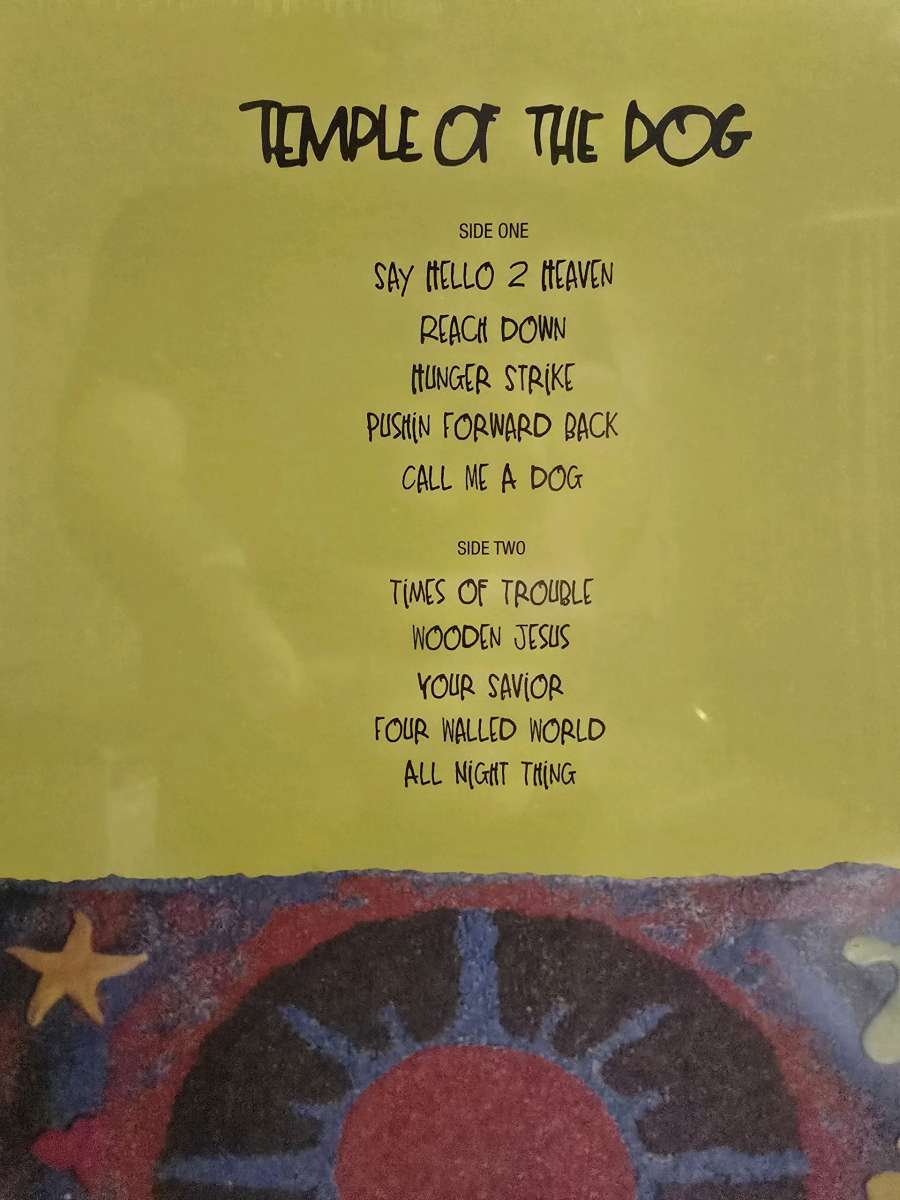 TEMPLE OF THE DOG
SIDE ONE
SAY HELLO 2 HEAVEN
REACH DOWN
HUNGER STRiKE
PUSHiN FORWARD BACK
CALL ME A DOG
SIDE TWO
TiMES OF TROUBLE
WOODEN JESUS
YOUR SAViOR
FOUR WALLED WORLD
ALL NiGHT THiNG